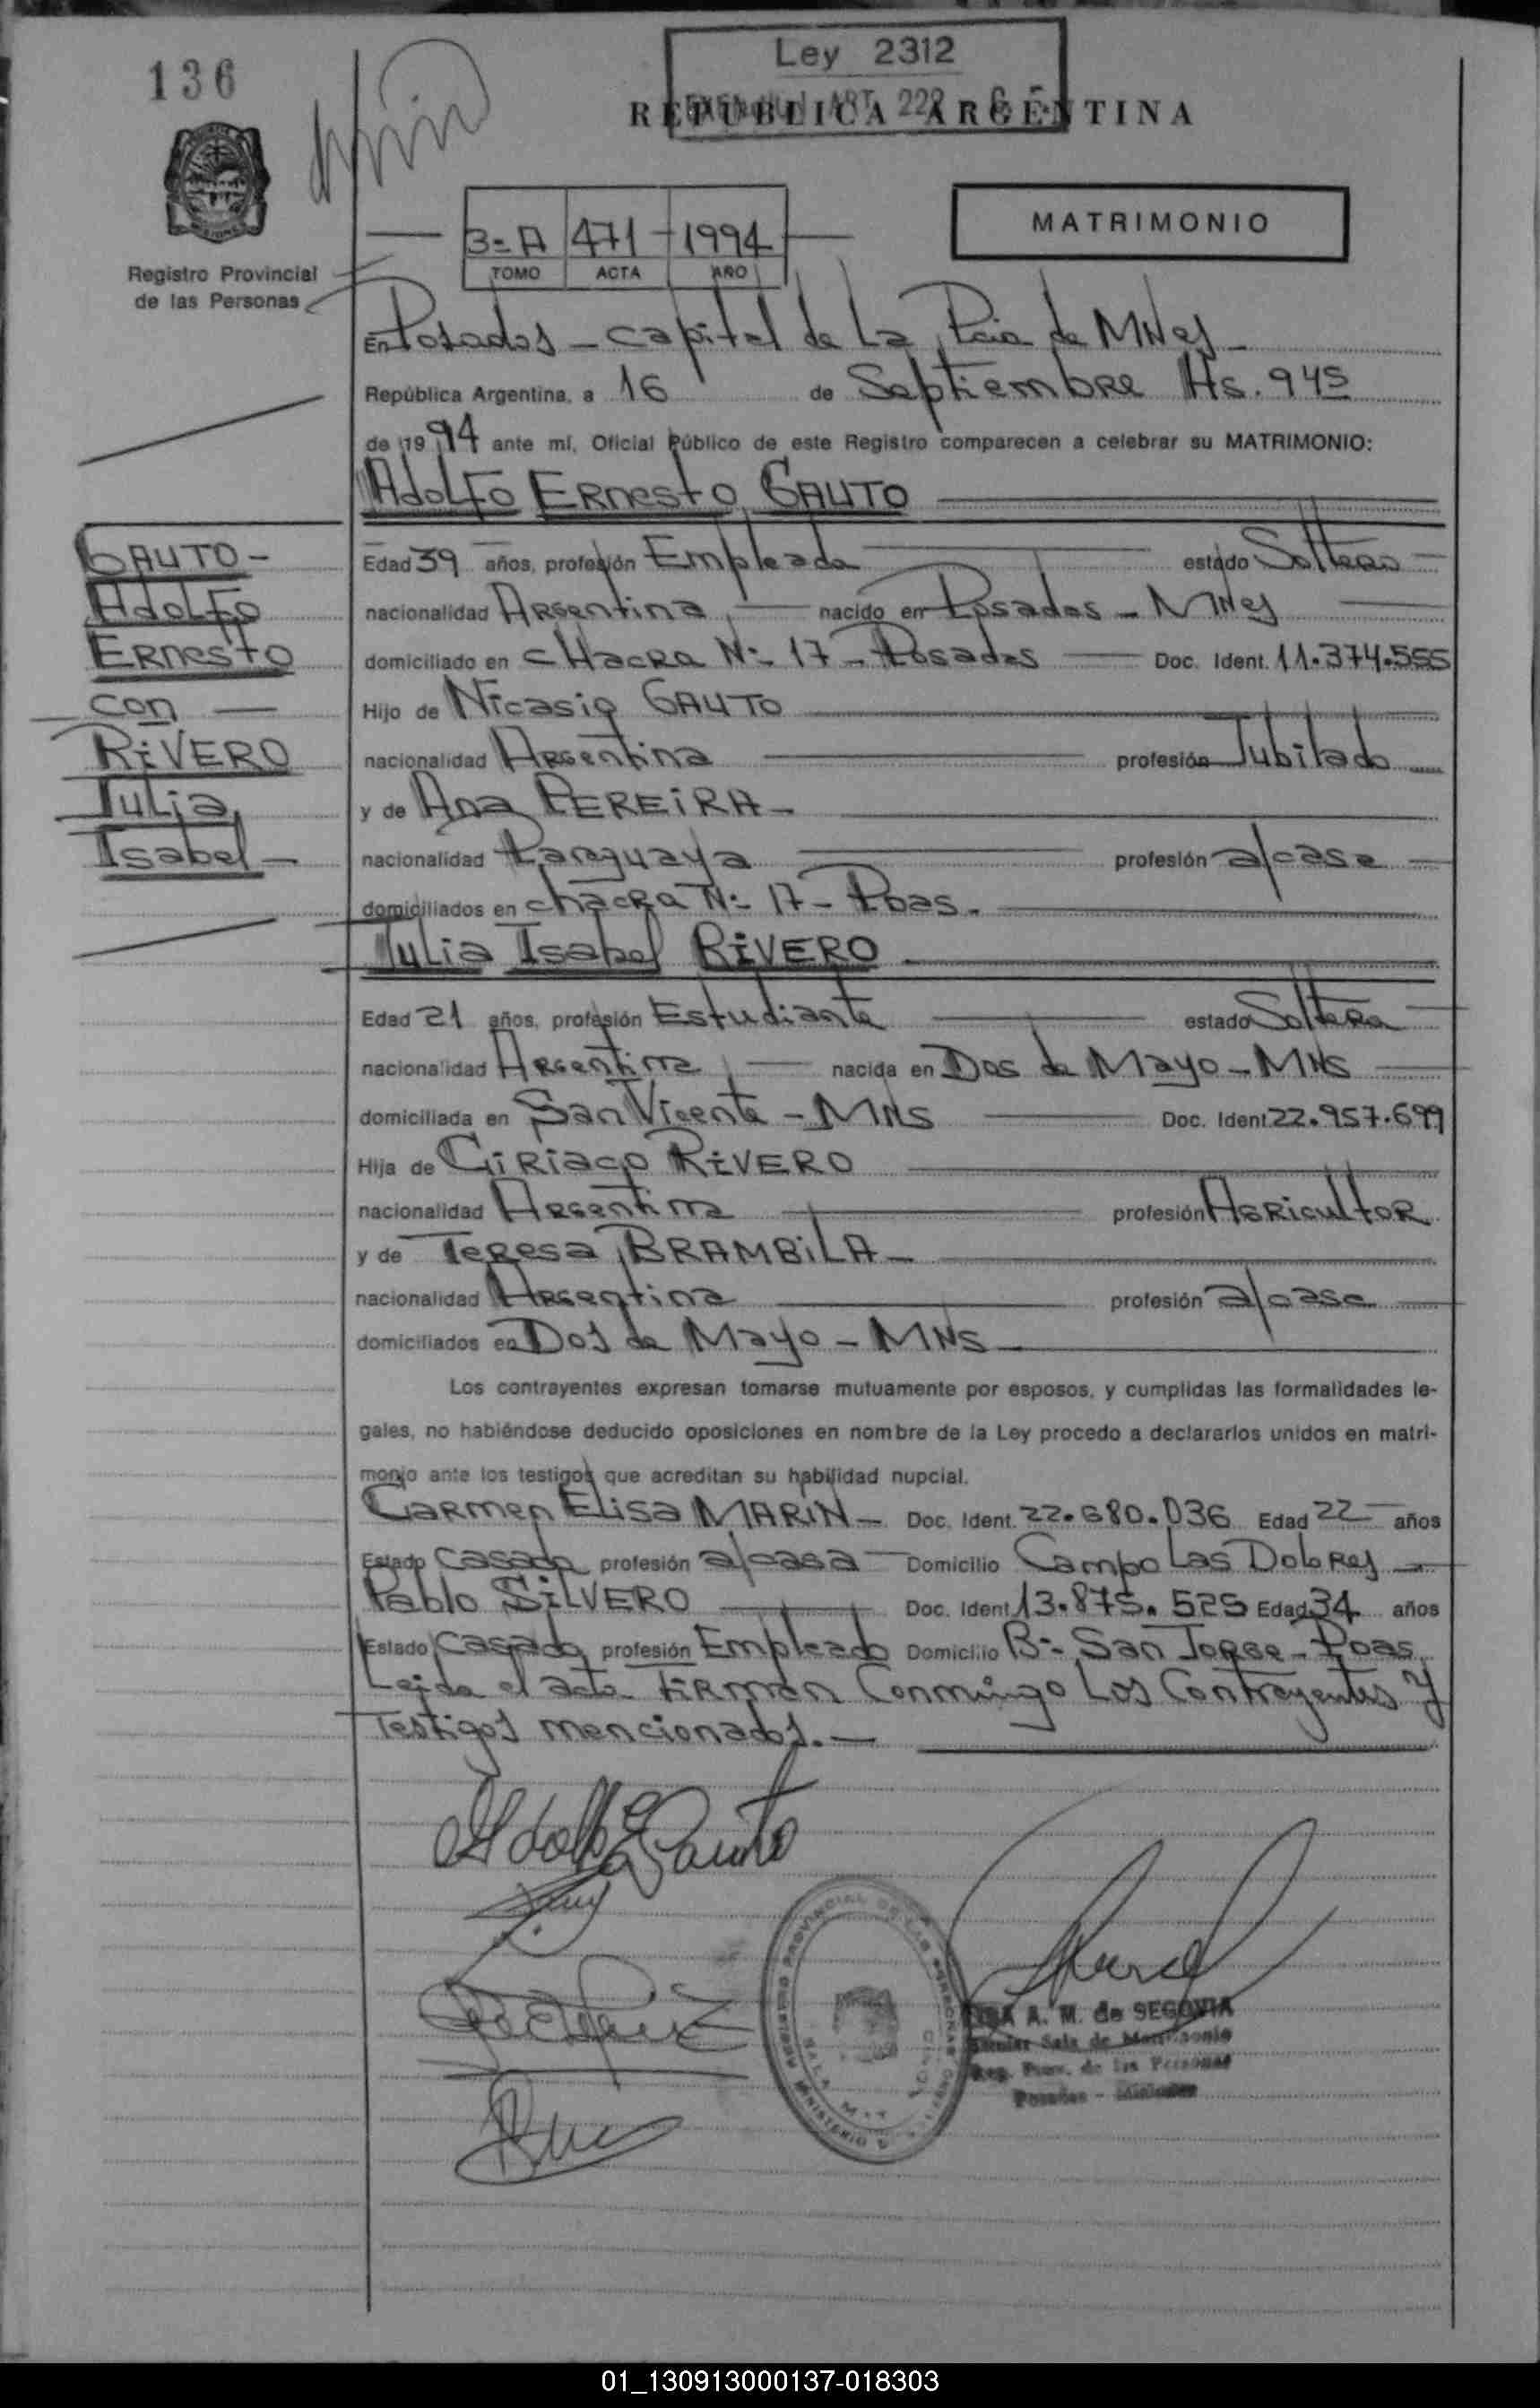 136
Ley 2312
REPUBLICA ARGENTINA
MATRIMONIO
3-A 471 1994
TOMO ACTA AÑO
Registro Provincial
de las Personas
En Posadas - Capital de La Pcia de MNes -
República Argentina, a 16 de Septiembre Hs. 945
de 1994 ante mí, Oficial Público de este Registro comparecen a celebrar su MATRIMONIO:
Adolfo Ernesto GAUTO
GAUTO -
Adolfo
Ernesto
con
RiVERO
Julia
Isabel -
Edad 39 años, profesión Empleado estado Soltero
nacionalidad Argentina nacido en Posadas - MNes
domiciliado en CHacra N:- 17 - Posadas Doc. Ident. 11.374.555
Hijo de Nicasio GAUTO
nacionalidad Argentina profesión Jubilado
y de Ana PEREiRA -
nacionalidad Paraguaya profesión a/casa
domiciliados en chacra N:- 17 - Pdas.
Julia Isabel RiVERO
Edad 21 años, profesión Estudiante estado Soltera
nacionalidad Argentina nacida en Dos de Mayo - MNS
domiciliada en San Vicente - MNS Doc. Ident. 22.957.699
Hija de CiRiaco RiVERO
nacionalidad Argentina profesión Agricultor
y de Teresa BRAMBiLA -
nacionalidad Argentina profesión a/casa
domiciliados en Dos de Mayo - MNS
Los contrayentes expresan tomarse mutuamente por esposos, y cumplidas las formalidades le-
gales, no habiéndose deducido oposiciones en nombre de la Ley procedo a declararlos unidos en matri-
monio ante los testigos que acreditan su habilidad nupcial.
Carmen Elisa MARIN - Doc. Ident. 22.680.036 Edad 22 años
Estado Casada profesión a/casa Domicilio Campo Las Dolores
Pablo SiLVERO Doc. Ident. 13.875.525 Edad 34 años
Estado Casado profesión Empleado Domicilio B:- San Jorge - Pdas
Leida el acta Firman Conmingo Los Contrayentes y
Testigos mencionados. -
Adolfo E Gauto
A. M. de SEGOVIA
Titular Sala de Matrimonio
Reg. Prov. de las Personas
Posadas - Misiones
01_130913000137-018303